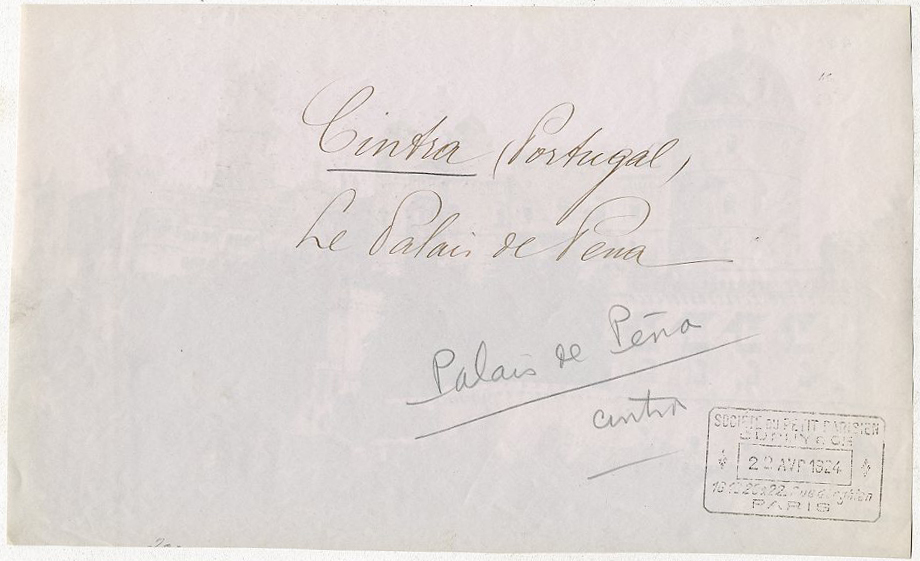 Cintra (Portugal)
Le Palais de Pena
Palais de Pēna
cintra
SOCIÉTÉ DU PETIT PARISIEN
DUPUY & CIE
22 AVR 1924
Rue d'Enghien
PARIS